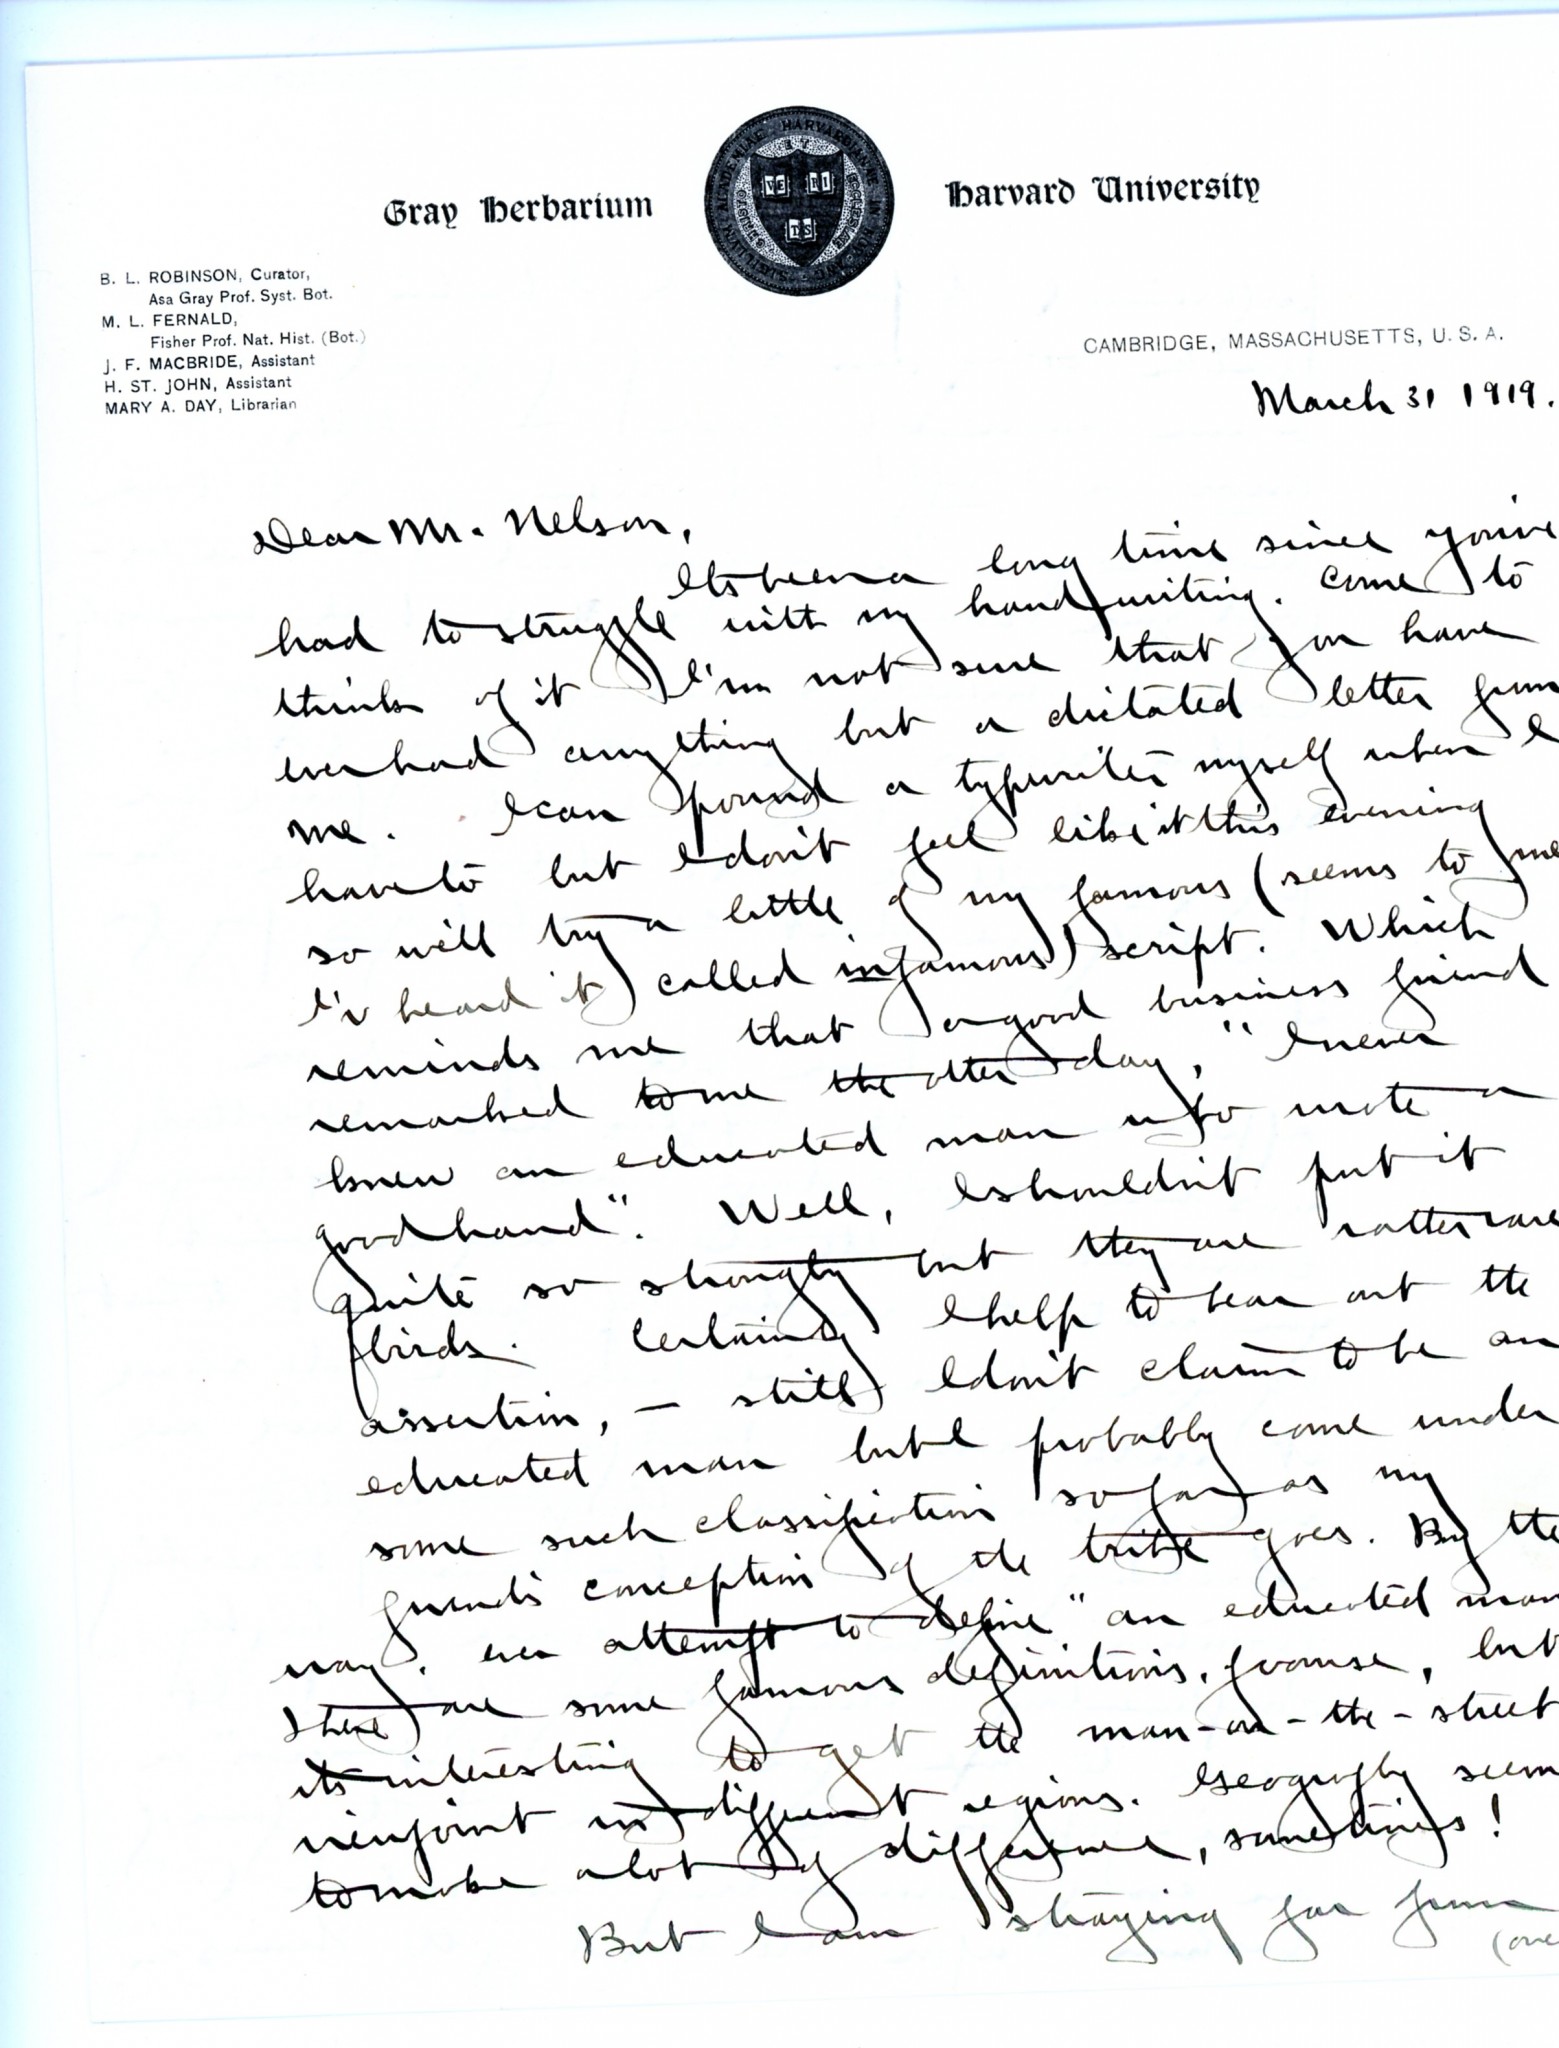 Gray Herbarium
Harvard University
VE RI TS
B. L. ROBINSON, Curator,
Asa Gray Prof. Syst. Bot.
M. L. FERNALD,
Fisher Prof. Nat. Hist. (Bot.)
J. F. MACBRIDE, Assistant
H. ST. JOHN, Assistant
MARY A. DAY, Librarian
CAMBRIDGE, MASSACHUSETTS, U. S. A.
March 31 1919.
Dear Mr. Nelson,
Its been a long time since you've
had to struggle with my handwriting. Come to
think of it I'm not sure that you have
ever had anything but a dictated letter from
me. I can pound a typewriter myself when I
have to but I don't feel like it this evening
so will try a little of my famous (seems to me
I'v heard it called infamous) script. Which
reminds me that a good business friend
remarked to me the other day, "I never
knew an educated man who wrote a
good hand". Well, I shouldn't put it
quite so strongly but they are rather rare
birds. Certainly I help to bear out the
assertion, — still I don't claim to be an
educated man but I probably come under
some such classification so far as my
friend's conception of the tribe goes. By the
way, ever attempt to define "an educated man
There are some famous definitions, of course, but
its interesting to get the man-on-the-street
viewpoint in different regions. Geography seem
to make a lot of difference, sometimes!
But I am straying far from
(ove